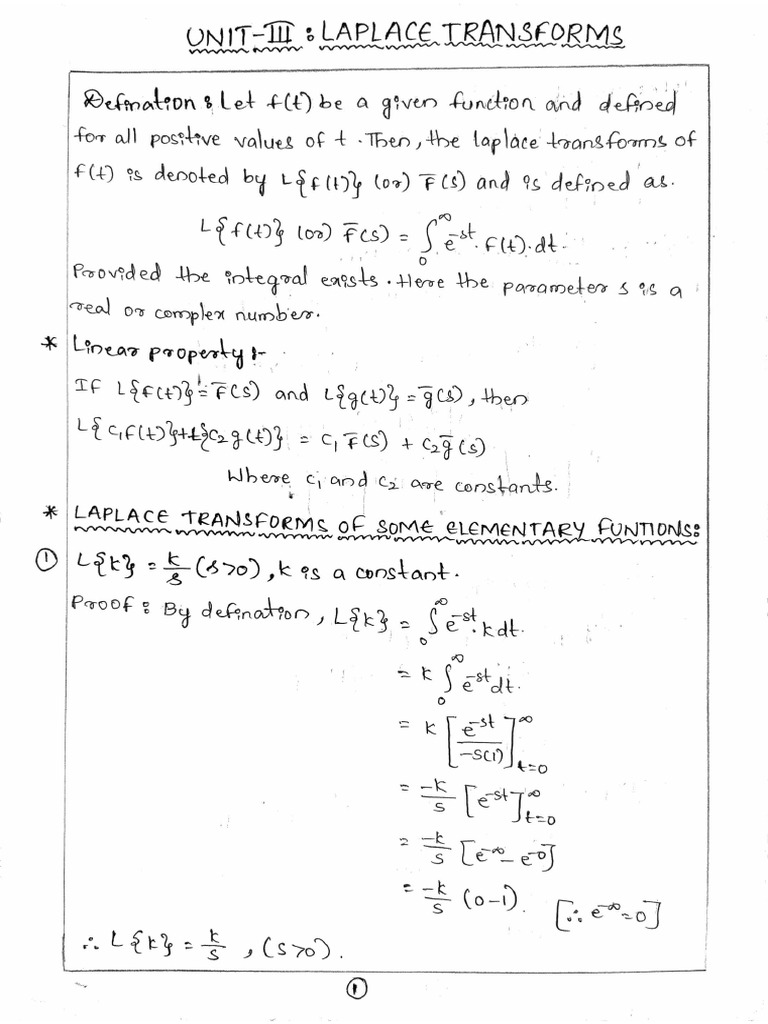 UNIT-III : LAPLACE TRANSFORMS
Defination : Let f(t) be a given function and defined
for all positive values of t. Then, the laplace transforms of
f(t) is denoted by L{f(t)} (or) F̄(s) and is defined as.
L{f(t)} (or) F̄(s) = ∫₀^∞ e^-st. f(t).dt.
Provided the integral exists. Here the parameter s is a
real or complex number.
* Linear property :-
If L{f(t)} = F̄(s) and L{g(t)} = ḡ(s), then
L{c₁f(t)}+L{c₂g(t)} = c₁ F̄(s) + c₂ḡ(s)
Where c₁ and c₂ are constants.
* LAPLACE TRANSFORMS OF SOME ELEMENTARY FUNTIONS:
① L{k} = k/s (s>0), k is a constant.
Proof : By defination, L{k} = ∫₀^∞ e^-st. k dt.
= k ∫₀^∞ e^-st dt.
= k [e^-st / -s(1)]^∞_t=0
= -k/s [e^-st]^∞_t=0
= -k/s [e^-∞ - e^-0]
= -k/s (0-1). [∵ e^-∞ = 0]
∴ L{k} = k/s , (s>0).
①